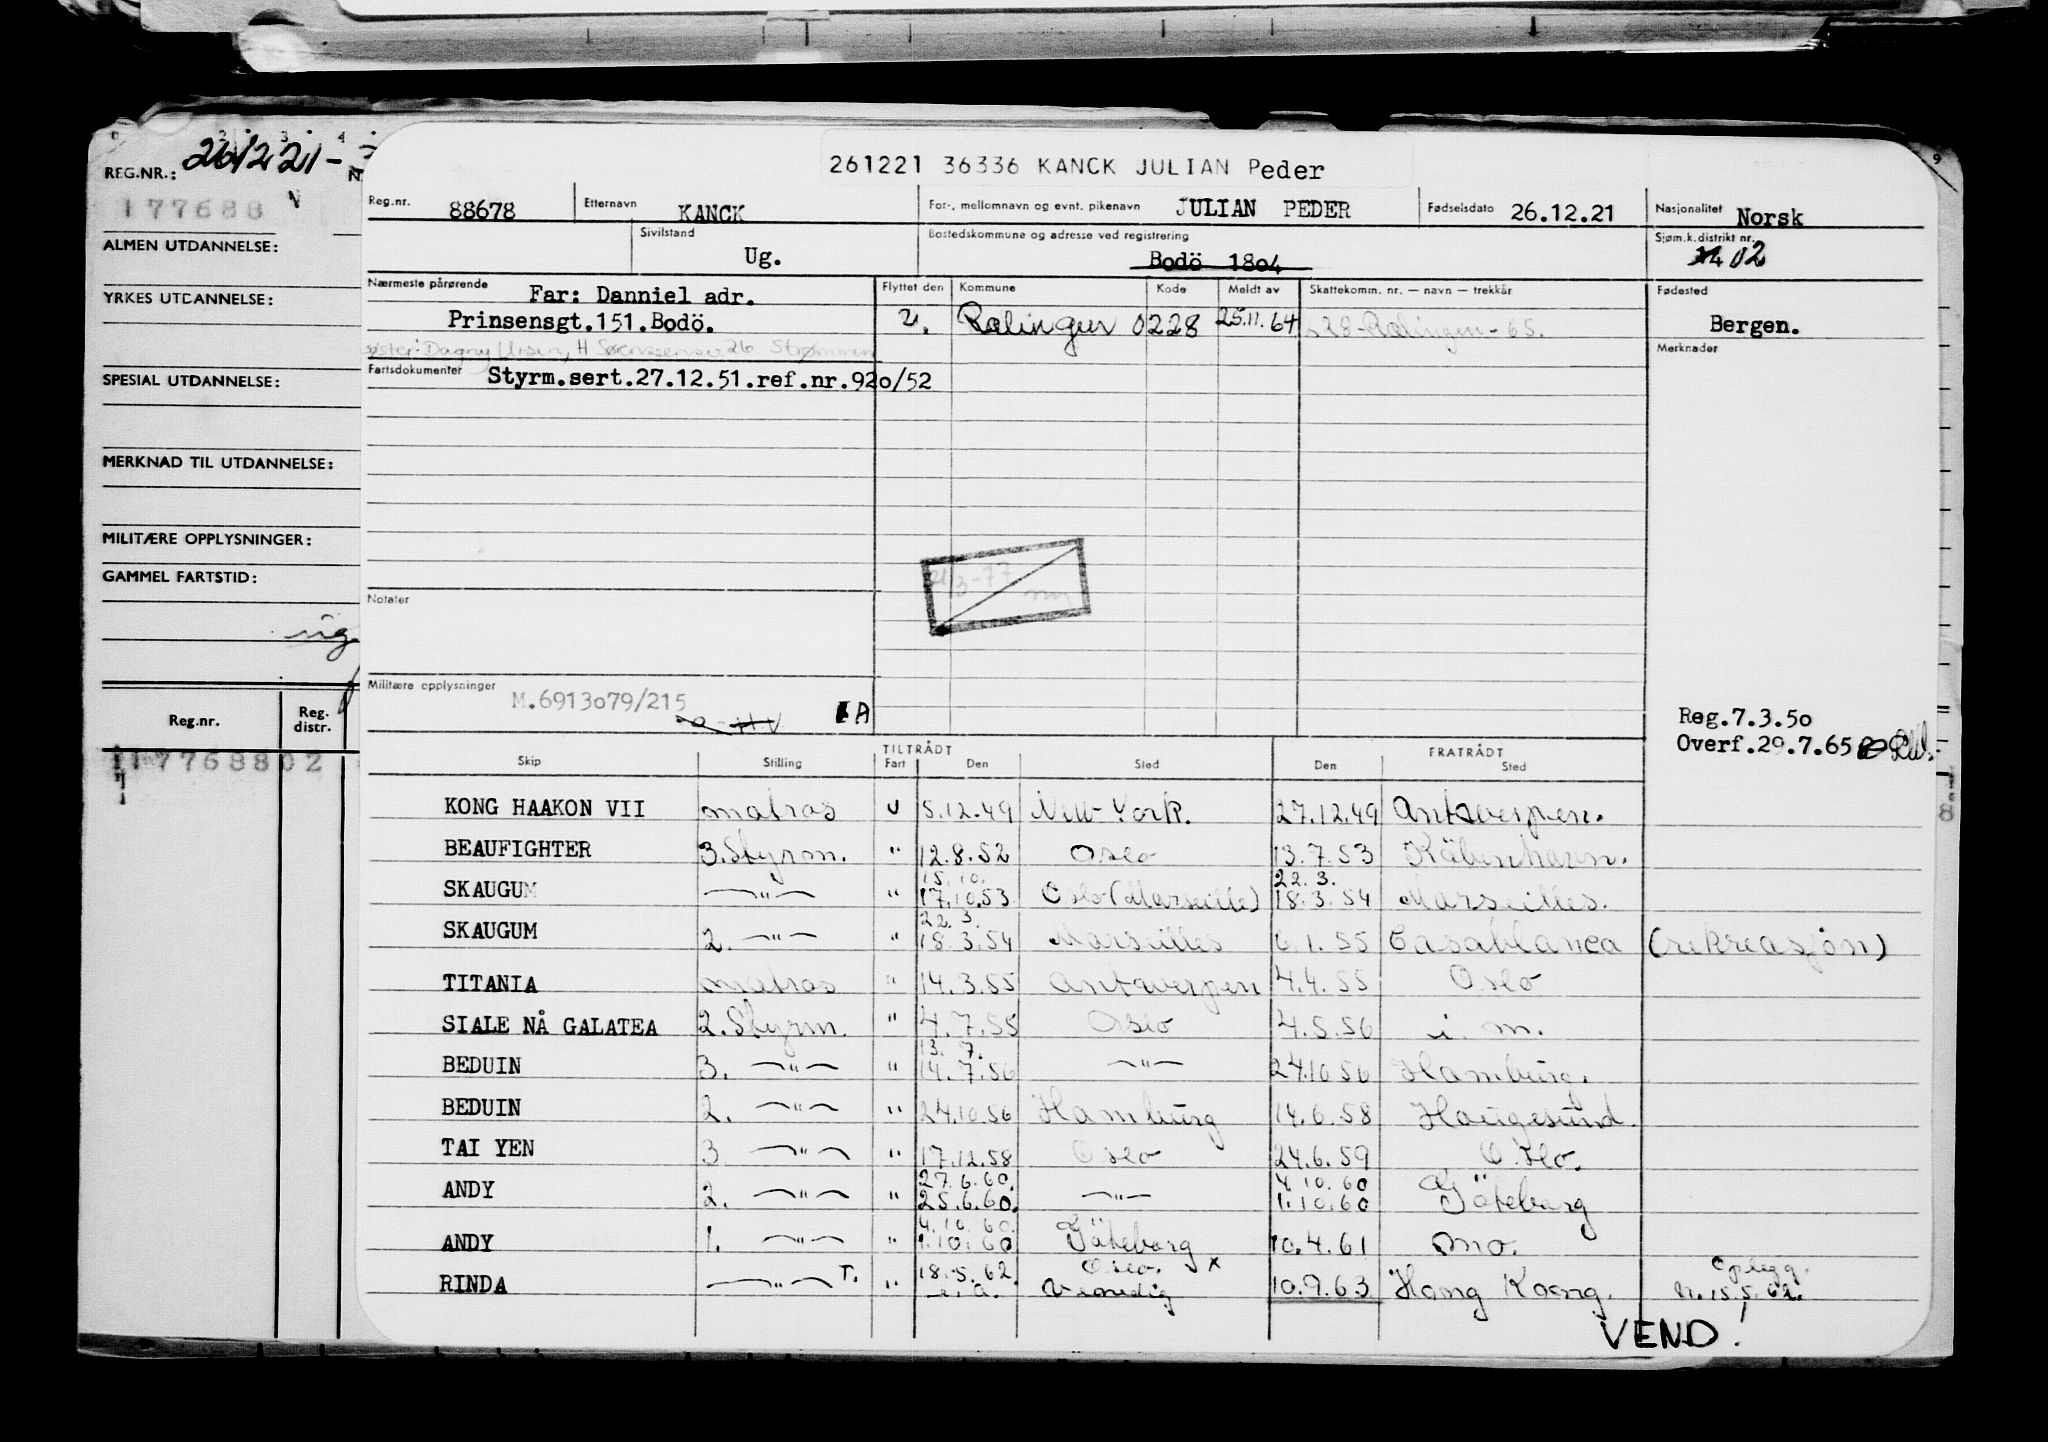 REG.NR.: 261221-
177688
ALMEN UTDANNELSE:
YRKES UTDANNELSE:
SPESIAL UTDANNELSE:
MERKNAD TIL UTDANNELSE:
MILITÆRE OPPLYSNINGER:
GAMMEL FARTSTID:
ug
Reg.nr. Reg. distr.
17768802
261221 36336 KANCK JULIAN Peder
Reg.nr. 88678 Etternavn KANCK For-, mellomnavn og evnt. pikenavn JULIAN PEDER Fødselsdato 26.12.21 Nasjonalitet Norsk
Sivilstand Ug. Bostedskommune og adresse ved registrering Bodö 1804 Sjøm.k.distrikt nr. 02
Nærmeste pårørende Far: Danniel adr. Flyttet den Kommune Kode Meldt av Skattekomm. nr. — navn — trekkår Fødested
Prinsensgt.151.Bodö. 2. Rælingen 0228 25.11.64 28-Rælingen-65. Bergen.
søster: Dagny H Sørenssensv. 26 Strømmen Merknader
Fartsdokumenter Styrm.sert.27.12.51.ref.nr.92o/52
Notater
Militære opplysninger M.6913o79/215 A
Reg.7.3.5o
Overf.29.7.65
TILTRÅDT FRATRÅDT
Skip Stilling Fart Den Sted Den Sted
KONG HAAKON VII matros U 5.12.49 New-York. 27.12.49 Antwerpen.
BEAUFIGHTER 3.Styrm. " 12.8.52 Oslo 13.7.53 Köbenhavn.
15.10. 22.3.
SKAUGUM —"— " 17.10.53 Oslo (Marseille) 18.3.54 Marseilles.
22.3.
SKAUGUM 2. —"— " 18.3.54 Marseilles 6.1.55 Casablanca (rekreasjon)
TITANIA matros " 14.3.55 Antwerpen 4.4.55 Oslo
SIALE NÅ GALATEA 2.Styrm. " 4.7.55 Oslo 4.5.56 i. m.
13.7.
BEDUIN 3. —"— " 14.7.56 —"— 24.10.56 Hamburg.
BEDUIN 2. —"— " 24.10.56 Hamburg 14.6.58 Haugesund.
TAI YEN 3 —"— " 17.12.58 Oslo 24.6.59 Oslo.
27.6.60. 4.10.60
ANDY 2. —"— " 25.6.60. —"— 1.10.60 Göteborg
4.10.60.
ANDY 1. —"— " 1.10.60 Göteborg 10.4.61 Mo.
18.5.62. Oslo. x Opplegg.
RINDA —"— T. " Venedig 10.9.63 Hong Kong. 15.5.62.
VEND!